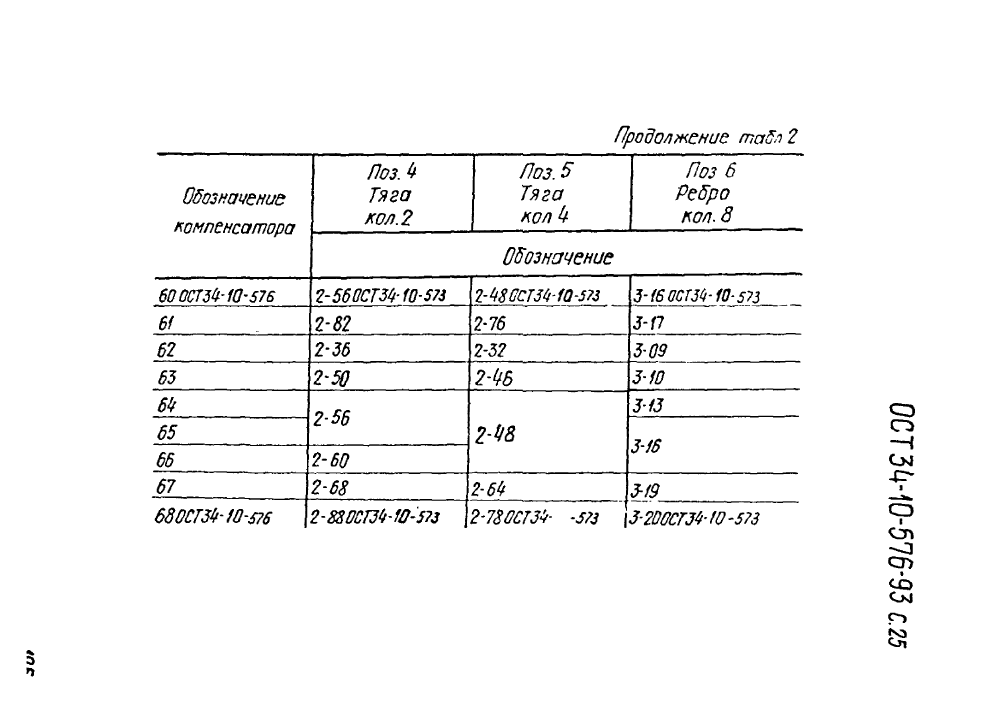 Продолжение табл 2
Обозначение компенсатора
Поз. 4 Тяга кол. 2
Поз. 5 Тяга кол 4
Поз 6 Ребро кол. 8
Обозначение
60 ОСТ34-10-576 2-56 ОСТ34-10-573 2-48 ОСТ34-10-573 3-16 ОСТ34-10-573
61 2-82 2-76 3-17
62 2-36 2-32 3-09
63 2-50 2-46 3-10
64 2-56 2-48 3-13
65 3-16
66 2-60
67 2-68 2-64 3-19
68 ОСТ34-10-576 2-88 ОСТ34-10-573 2-78 ОСТ34- -573 3-20 ОСТ34-10-573
ОСТ 34-10-576-93 с.25